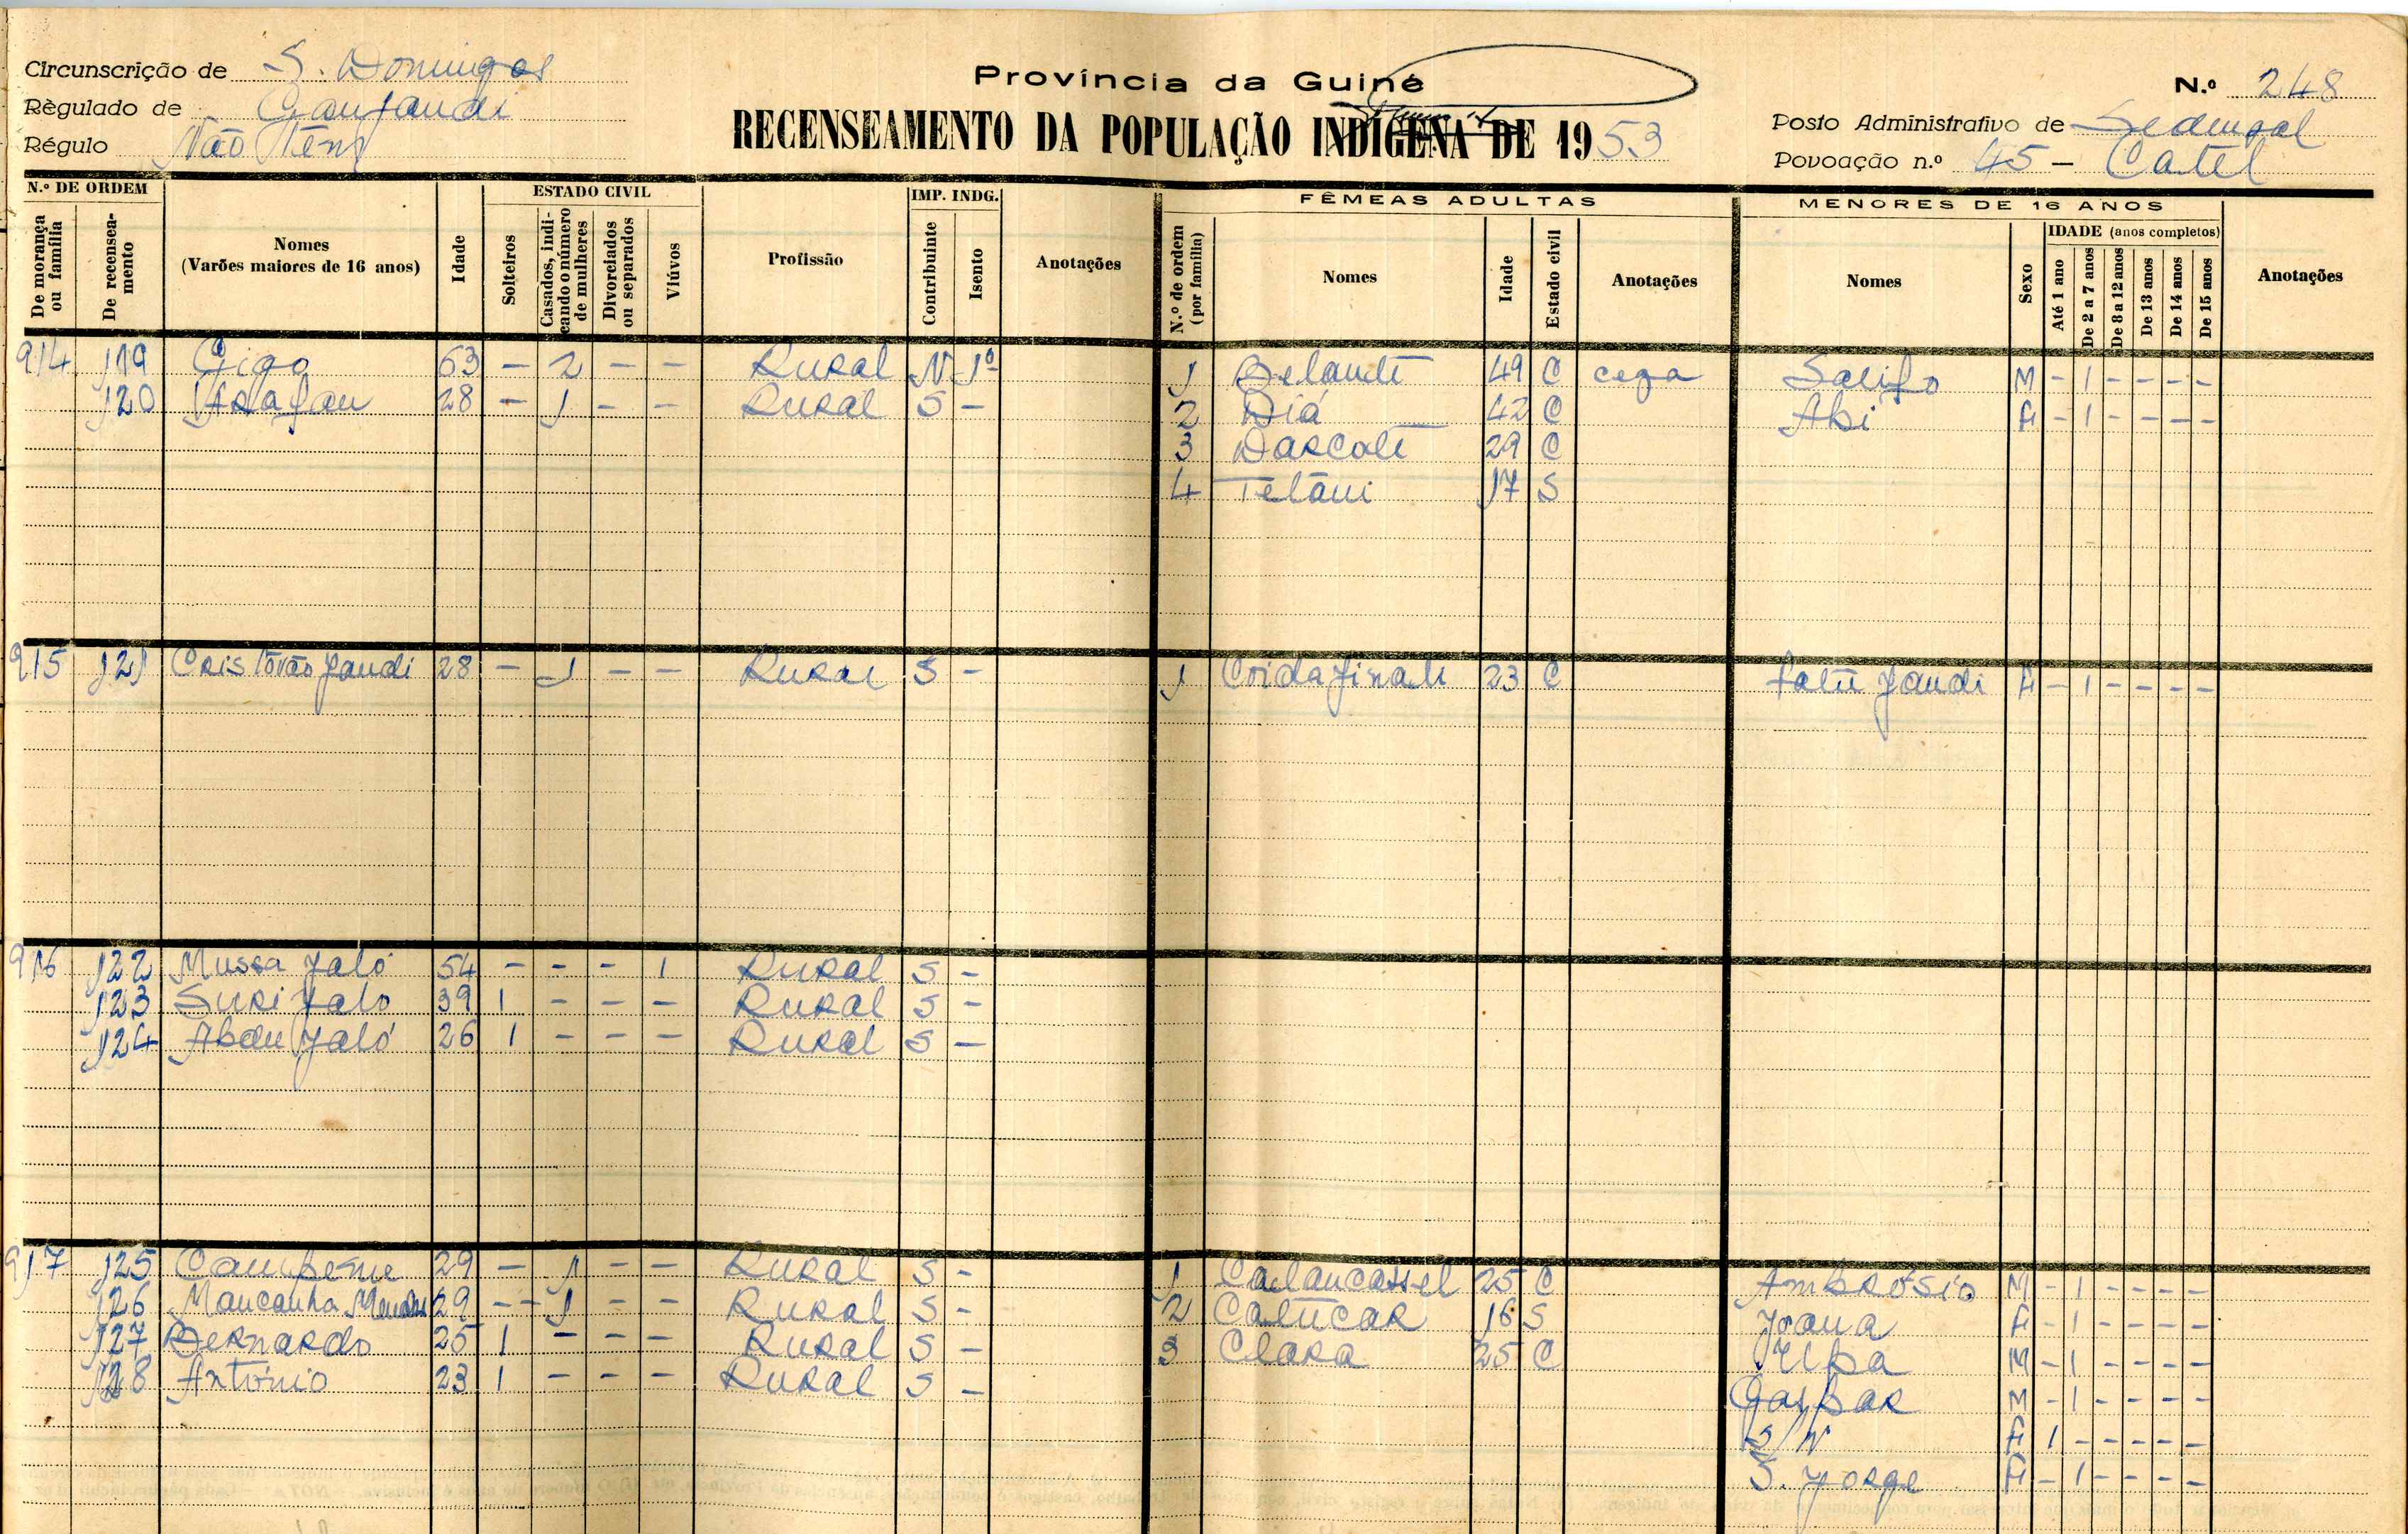 Circunscrição de S. Domingos
Règulado de
Régulo Não têm
Província da Guiné
RECENSEAMENTO DA POPULAÇÃO INDÍGENA DE 1953
N.º 248
Posto Administrativo de
Povoação n.º 45 - Catel
N.º DE ORDEM
De morança ou família
De recenseamento
Nomes (Varões maiores de 16 anos)
Idade
ESTADO CIVIL
Solteiros
Casados, indicando o número de mulheres
Divorciados ou separados
Viúvos
Profissão
IMP. INDG.
Contribuinte
Isento
Anotações
FÊMEAS ADULTAS
N.º de ordem (por família)
Nomes
Idade
Estado civil
Anotações
MENORES DE 16 ANOS
Nomes
Sexo
IDADE (anos completos)
Até 1 ano
De 2 a 7 anos
De 8 a 12 anos
De 13 anos
De 14 anos
De 15 anos
Anotações
914 119 63 - 2 - - Rural N 1 49 C cega M - 1 - - - -
120 28 - 1 - - Rural S - 2 Diá 42 C F - 1 - - - -
3 29 C
4 17 S
915 121 Cristóvão Jandi 28 - 1 - - Rural S - 1 23 C Jandi F - 1 - - - -
916 122 Mussa Jaló 54 - - - 1 Rural S -
123 Suri Jaló 39 1 - - - Rural S -
124 Abdu Jaló 26 1 - - - Rural S -
917 125 29 - 1 - - Rural S - 1 Calancassel 25 C Ambrósio M - 1 - - - -
126 Mancanha Mendes 29 - 1 - - Rural S - 2 Catucar 16 S Joana F - 1 - - - -
127 Bernardo 25 1 - - - Rural S - 3 Clara 25 C M - 1 - - - -
128 António 23 1 - - - Rural S - Gaspar M - 1 - - - -
S/N F 1 - - - - -
S. Jorge F - 1 - - - -